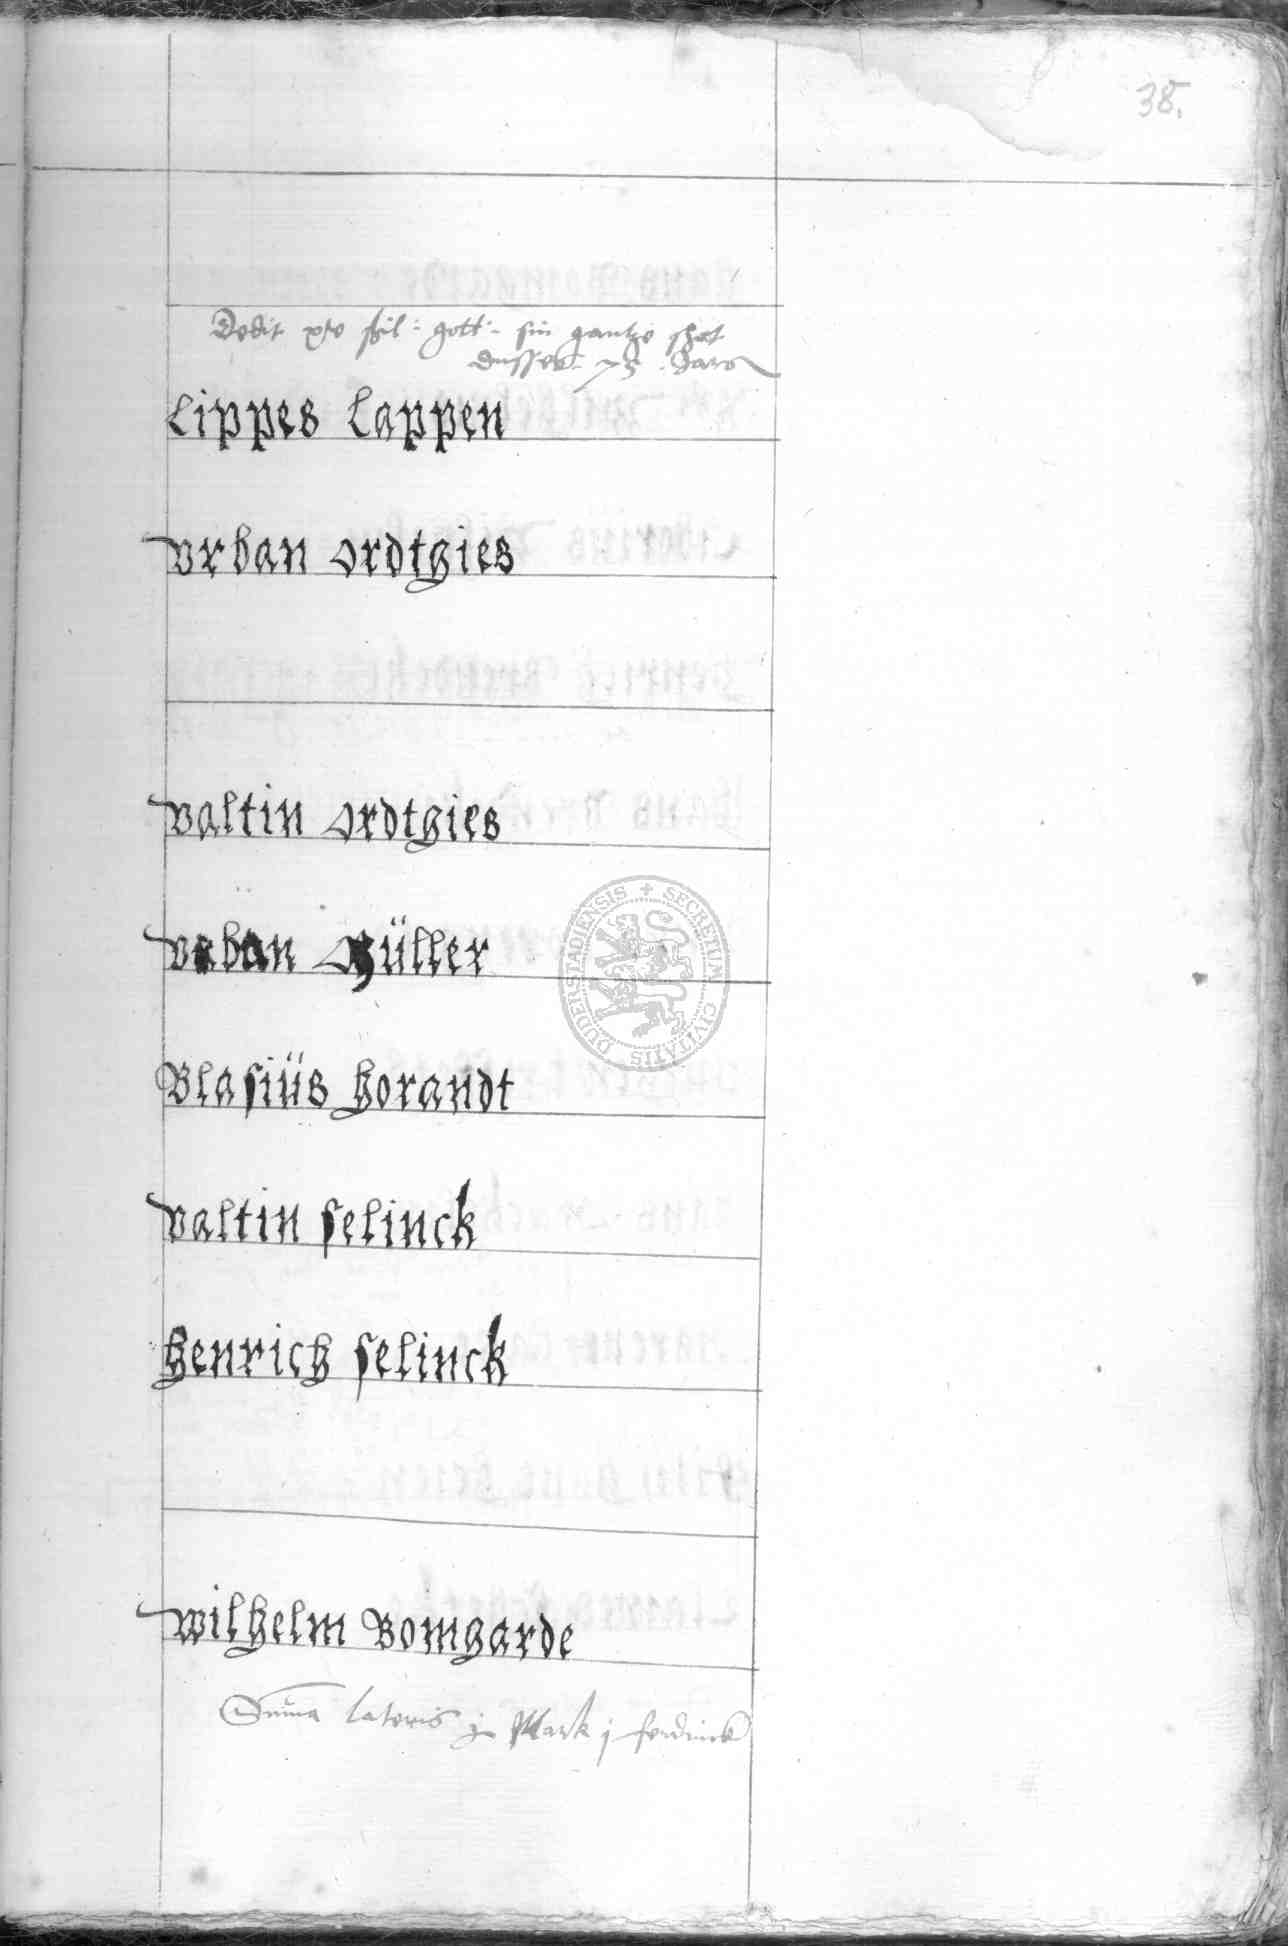 38.
Dedit xv schil: gott: sin gantze schot
dusses 75 Jars
Lippes Lappen
Vrban Ordtgies
Valtin Ordtgies
Vrban Müller
Blasiüs Horandt
Valtin Selinck
Henrich Selinck
Wilhelm Bomgarde
Sum̄a lateris j Mark j ferdinck
SECRETUM CIVITATIS DUDERSTADIENSIS